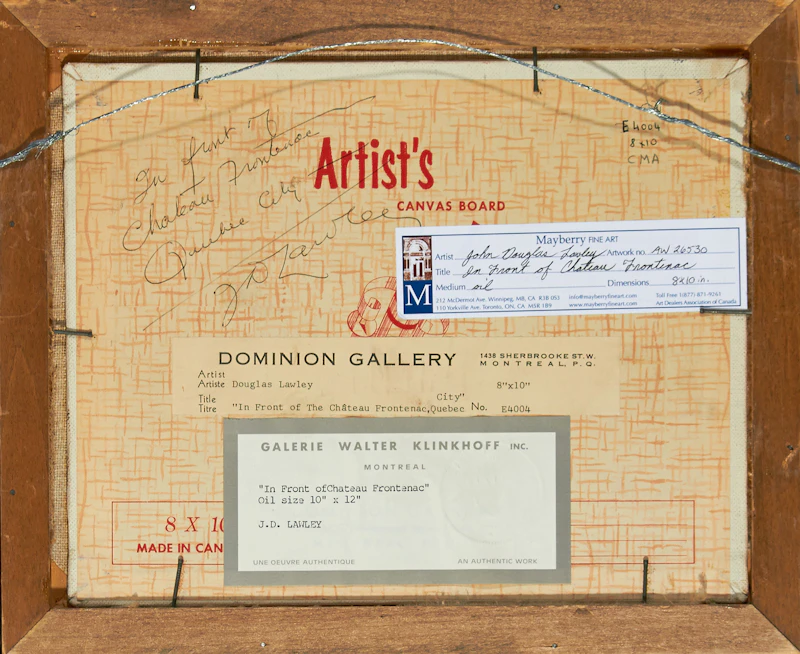 In front of
Chateau Frontenac
Quebec City
J D Lawley
E4004
8x10
CMA
Artist's
CANVAS BOARD
Mayberry FINE ART
Artist John Douglas Lawley Artwork no. AW 26530
Title In Front of Chateau Frontenac
Medium oil Dimensions 8x10 in.
M
212 McDermot Ave. Winnipeg, MB, CA R3B 0S3 info@mayberryfineart.com Toll Free 1(877)-871-9261
110 Yorkville Ave. Toronto, ON, CA M5R 1B9 www.mayberryfineart.com Art Dealers Association of Canada
DOMINION GALLERY 1438 SHERBROOKE ST. W.
MONTREAL, P. Q.
Artist
Artiste Douglas Lawley 8"x10"
Title City"
Titre "In Front of The Château Frontenac,Quebec No. E4004
GALERIE WALTER KLINKHOFF INC.
MONTREAL
"In Front ofChateau Frontenac"
Oil size 10" x 12"
J.D. LAWLEY
UNE OEUVRE AUTHENTIQUE AN AUTHENTIC WORK
8 X 10
MADE IN CAN